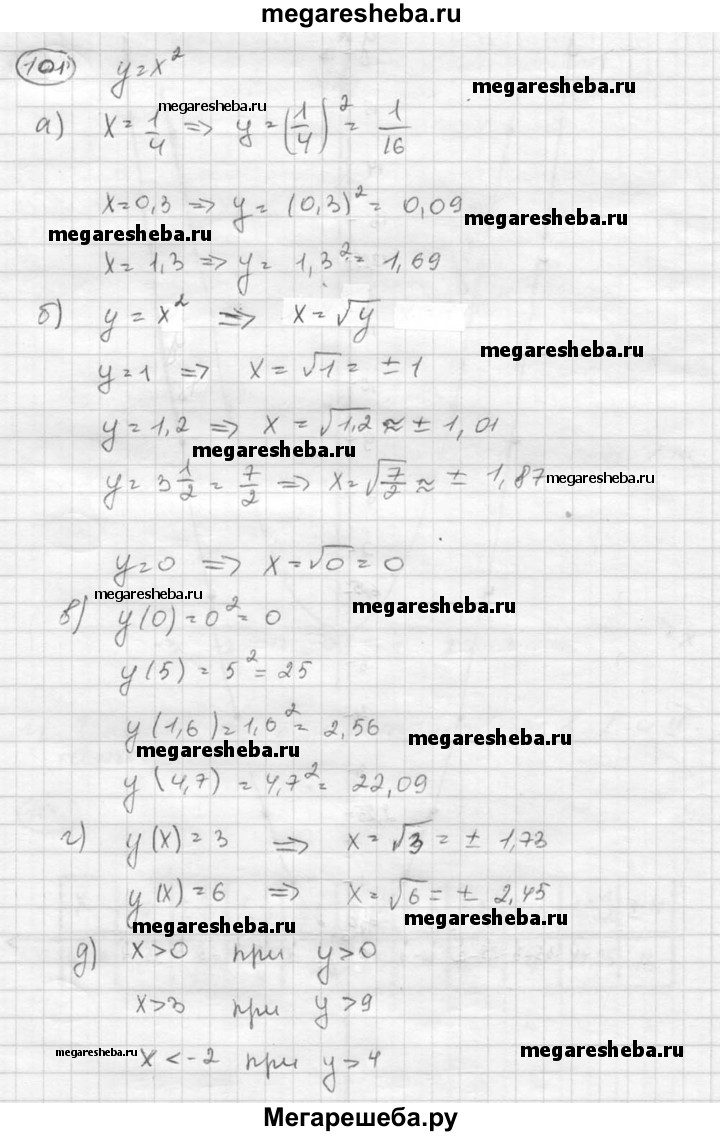 megaresheba.ru
101 y=x²
megaresheba.ru
megaresheba.ru
а) x=1/4 => y=(1/4)²=1/16
x=0,3 => y=(0,3)²=0,09
megaresheba.ru
megaresheba.ru
x=1,3 => y=1,3²=1,69
б) y=x² => x=√y
megaresheba.ru
y=1 => x=√1=±1
y=1,2 => x=√1,2≈±1,01
megaresheba.ru
y=3 1/2=7/2 => x=√7/2≈±1,87
megaresheba.ru
y=0 => x=√0=0
megaresheba.ru
megaresheba.ru
в) y(0)=0²=0
y(5)=5²=25
y(1,6)=1,6²=2,56
megaresheba.ru
megaresheba.ru
y(4,7)=4,7²=22,09
г) y(x)=3 => x=√3=±1,73
y(x)=6 => x=√6=±2,45
megaresheba.ru
megaresheba.ru
д) x>0 при y>0
x>3 при y>9
megaresheba.ru
megaresheba.ru
x<-2 при y>4
Мегарешеба.ру